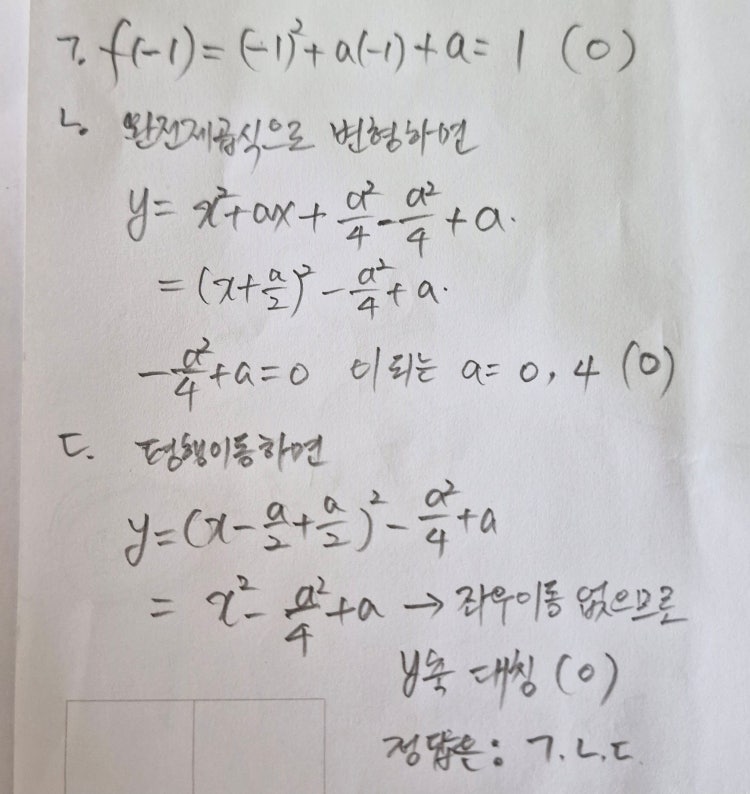 ㄱ. f(-1) = (-1)²+a(-1)+a= 1 (O)
ㄴ. 완전제곱식으로 변형하면
y= x²+ax+a²/4-a²/4+a.
= (x+a/2)²-a²/4+a.
-a²/4+a=0 이 되는 a= 0, 4 (O)
ㄷ. 평행이동하면
y=(x-a/2+a/2)²-a²/4+a
= x²-a²/4+a → 좌우이동 없으므로
y축 대칭 (O)
정답은: ㄱ.ㄴ.ㄷ